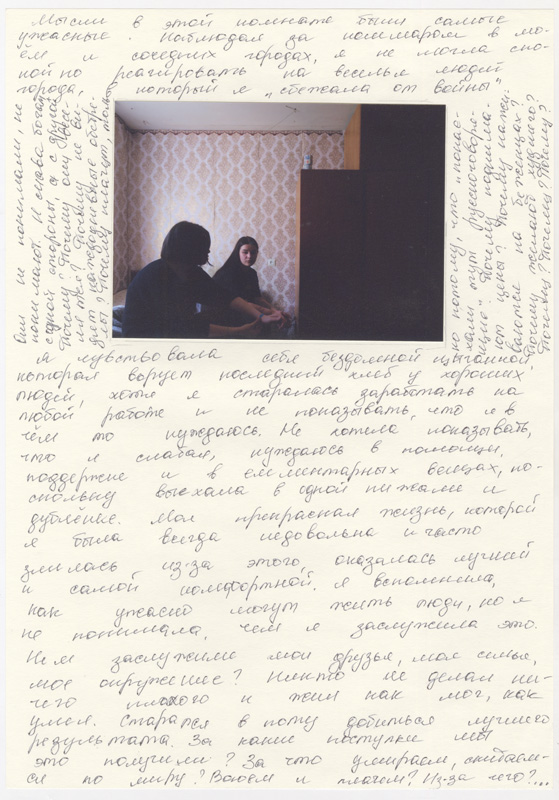 Мысли в этой комнате были самые
ужасные. Наблюдая за кошмаром в мо-
ём и соседних городах, я не могла спо-
койно реагировать на веселье людей
города, в который я „сбежала от войны“
они не понимали, не
понимают. И слава богу
с одной стороны, а с другой
Почему? Почему они
Почему не ви-
Почему плачут, толь
но потому, что „понае-
хали тут русскоговоря-
щие“. Почему поднима-
ют цены? Почему нажи-
ваются на беженцах?
Почему желают худшего?
Почему? Почему? Почему?
Я чувствовала себя бездомной цыганкой,
которая ворует последний хлеб у хороших
людей, хотя я старалась заработать на
любой работе и не показывать, что я в
чём то нуждаюсь. Не хотела показывать,
что я слабая, нуждаюсь в помощи,
поддержке и в елементарных вещах, по-
скольку выехала в одной пижаме и
дублёнке. Моя прекрасная жизнь, которой
я была всегда недовольна и часто
злилась из-за этого, оказалась лучшей
и самой комфортной. Я вспомнила,
как ужасно могут жить люди, но я
не понимала, чем я заслужила это.
Чем заслужили мои друзья, моя семья,
мое окружение? Никто не делал ни-
чего плохого и жил как мог, как
умел. Старался в поту добиться лучшего
результата. За какие поступки мы
это получили? За что умираем, скитаем-
ся по миру? Воюем и плачем? Из-за чего?...